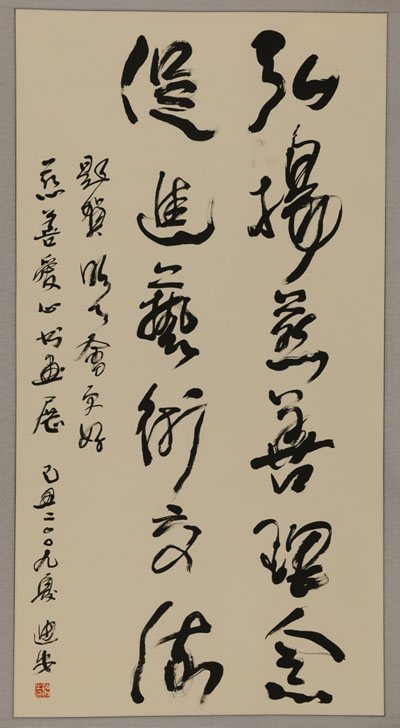 弘揚慈善理念
促進藝術交流
題賀明天會更好
慈善愛心书画展 己丑二〇〇九夏